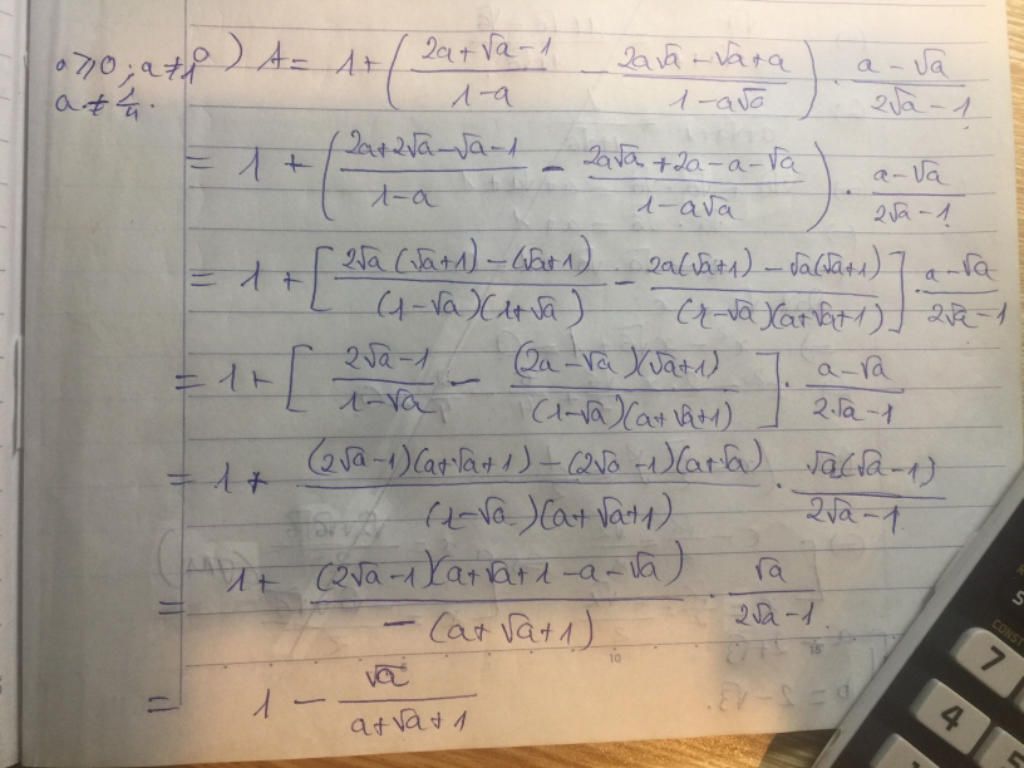 a ≥ 0; a ≠ 1
a ≠ 1/4.
a) A = 1 + ( (2a + √a - 1)/(1 - a) - (2a√a - √a + a)/(1 - a√a) ) . (a - √a)/(2√a - 1)
= 1 + ( (2a + 2√a - √a - 1)/(1 - a) - (2a√a + 2a - a - √a)/(1 - a√a) ) . (a - √a)/(2√a - 1)
= 1 + [ (2√a (√a + 1) - (√a + 1))/((1 - √a)(1 + √a)) - (2a(√a + 1) - √a(√a + 1))/((1 - √a)(a + √a + 1)) ] . (a - √a)/(2√a - 1)
= 1 + [ (2√a - 1)/(1 - √a) - ((2a - √a)(√a + 1))/((1 - √a)(a + √a + 1)) ] . (a - √a)/(2√a - 1)
= 1 + ((2√a - 1)(a + √a + 1) - (2√a - 1)(a + √a))/((1 - √a)(a + √a + 1)) . (√a(√a - 1))/(2√a - 1)
= 1 + ((2√a - 1)(a + √a + 1 - a - √a))/(- (a + √a + 1)) . √a/(2√a - 1)
= 1 - √a/(a + √a + 1)
10
15
7
4
5